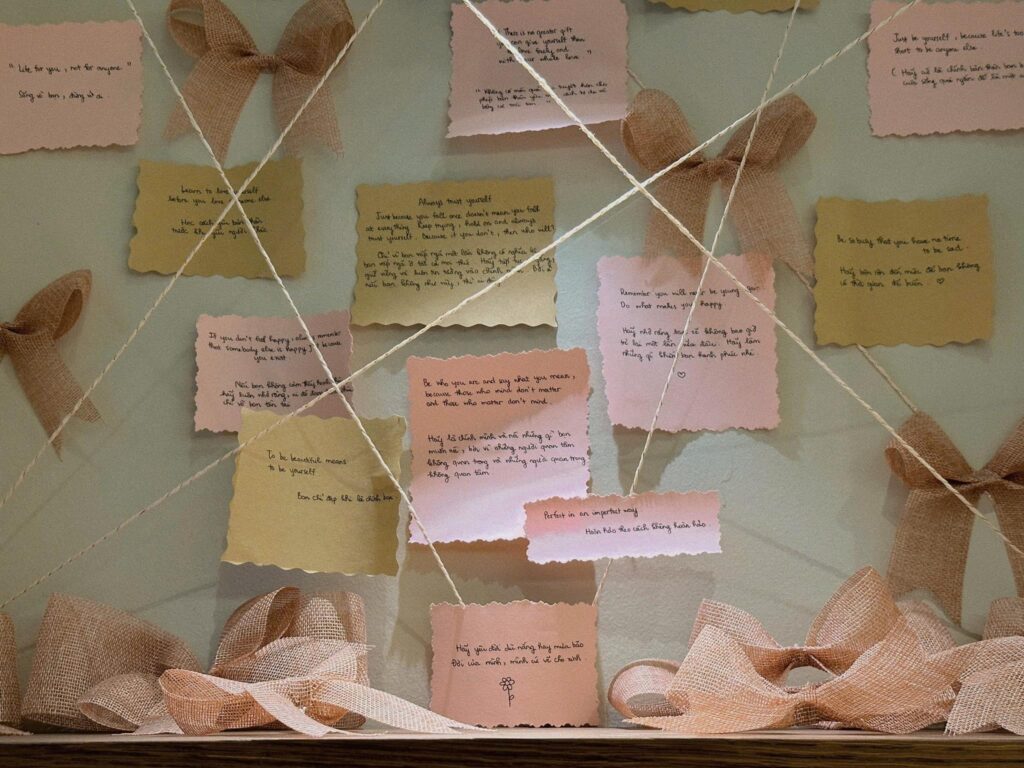 " Life for you , not for anyone "
Sống vì bạn , đừng vì ai
There is no greater gift
you can give yourself than
to love freely and
with your whole love "
" Không có món quà
Just be yourself , because life's too
short to be anyone else
( Hãy cứ là chính bản thân bạn
cuộc sống quá ngắn để
Learn to love yourself
before you love someone else
Học cách yêu bản thân
trước khi yêu người khác
Always trust yourself
Just because you fall once doesn't mean you fall
at everything. Keep trying , hold on and always
trust yourself. Because if you don't , then who will?
Chỉ vì bạn vấp ngã một lần không có nghĩa là
bạn vấp ngã ở tất cả mọi thứ. Hãy tiếp tục cố gắng,
giữ vững và luôn tin tưởng vào chính mình. Bởi vì
nếu bạn không như vậy , thì ai đây
Be so busy that you have no time
to be sad
Hãy bận rộn đến mức để bạn không
có thời gian để buồn .
If you don't feel happy , always remember
that somebody else is happy just because
you exist
Nếu bạn không cảm thấy hạnh
hãy luôn nhớ rằng , ai đó đang
chỉ vì bạn tồn tại
Remember you will never be young again
Do what makes you happy
Hãy nhớ rằng bạn sẽ không bao giờ
trẻ lại một lần nữa đâu. Hãy làm
những gì khiến bạn hạnh phúc nhé.
Be who you are and say what you mean ,
because those who mind don't matter
and those who matter don't mind
Hãy là chính mình và nói những gì bạn
muốn nói , bởi vì những người quan tâm
không quan trọng và những người quan trọng
không quan tâm
To be beautiful means
to be yourself
Bạn chỉ đẹp khi là chính bạn
Perfect in an imperfect way
Hoàn hảo theo cách không hoàn hảo
Hãy yêu đời dù nắng hay mưa bão
Đời của mình , mình cứ vẽ cho xinh